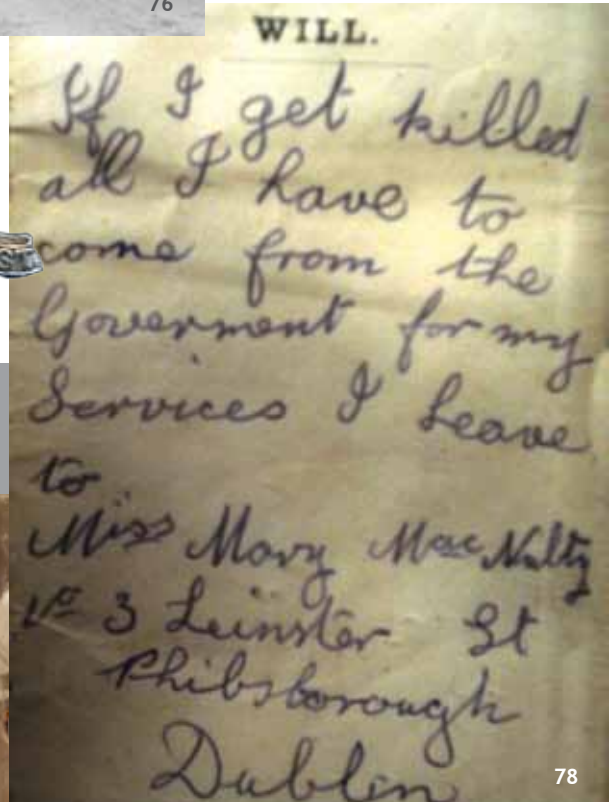 76
WILL.
If I get killed
all I have to
come from the
Goverment for my
Services I Leave
to
Miss Mary MacNulty
No 3 Leinster St
Phibsborough
Dublin
78